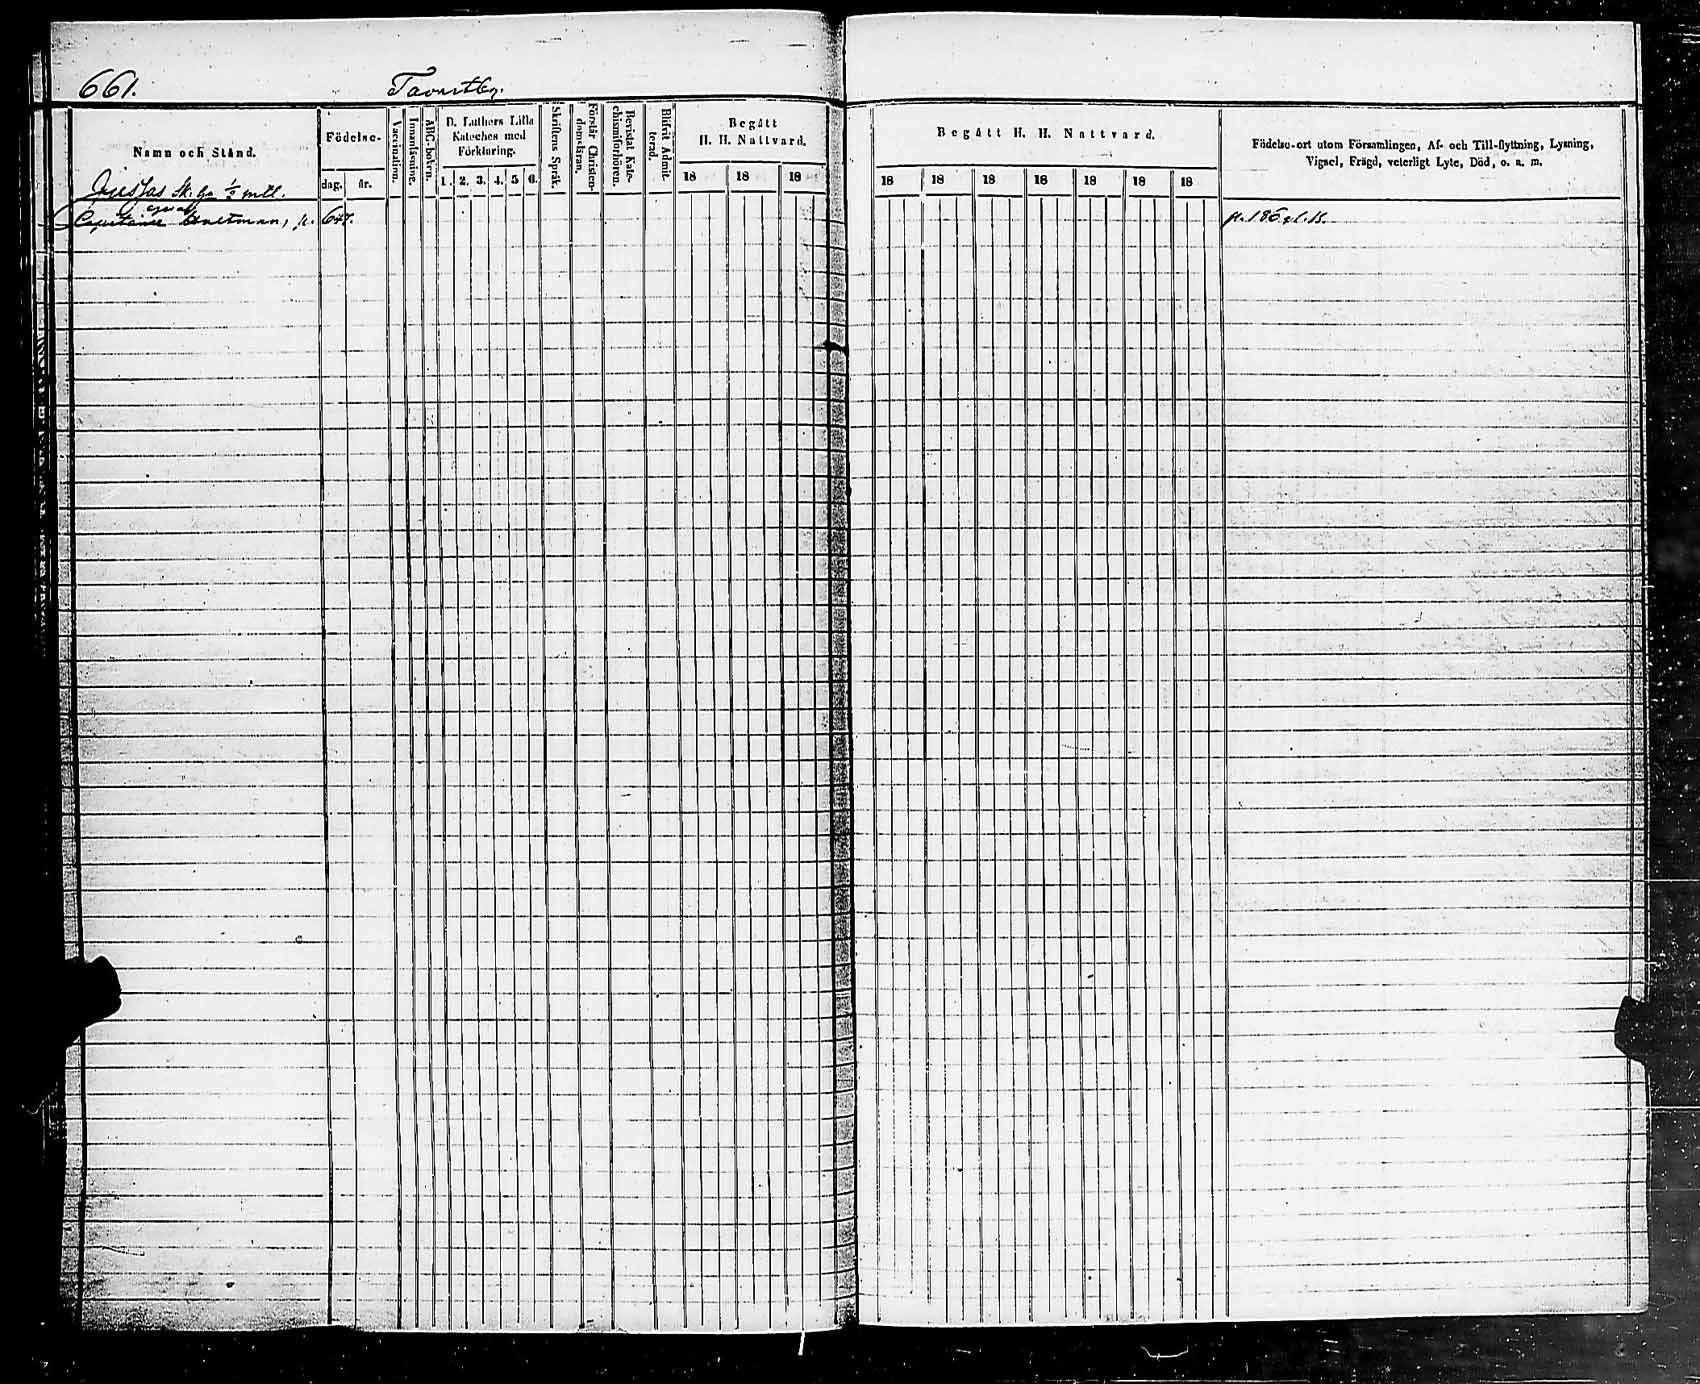 661. Tavastby.
Namn och Stånd.
Födelse-
dag. år.
Vaccination.
Innanläsning.
ABC-boken.
D. Luthers Lilla
Kateches med
Förklaring.
1. 2. 3. 4. 5 6.
Skriftens Språk.
Förstår Christen-
domsläran.
Bevistat Kate-
chismiförhören.
Blifvit Admit-
terad.
Begått
H. H. Nattvard.
18 18 18
Begått H. H. Nattvard.
18 18 18 18 18 18 18
Födelse-ort utom Församlingen, Af- och Till-flyttning, Lysning,
Vigsel, Frägd, veterligt Lyte, Död, o. s. m.
Sk. ½ mtl.
p. 647.
p. 186